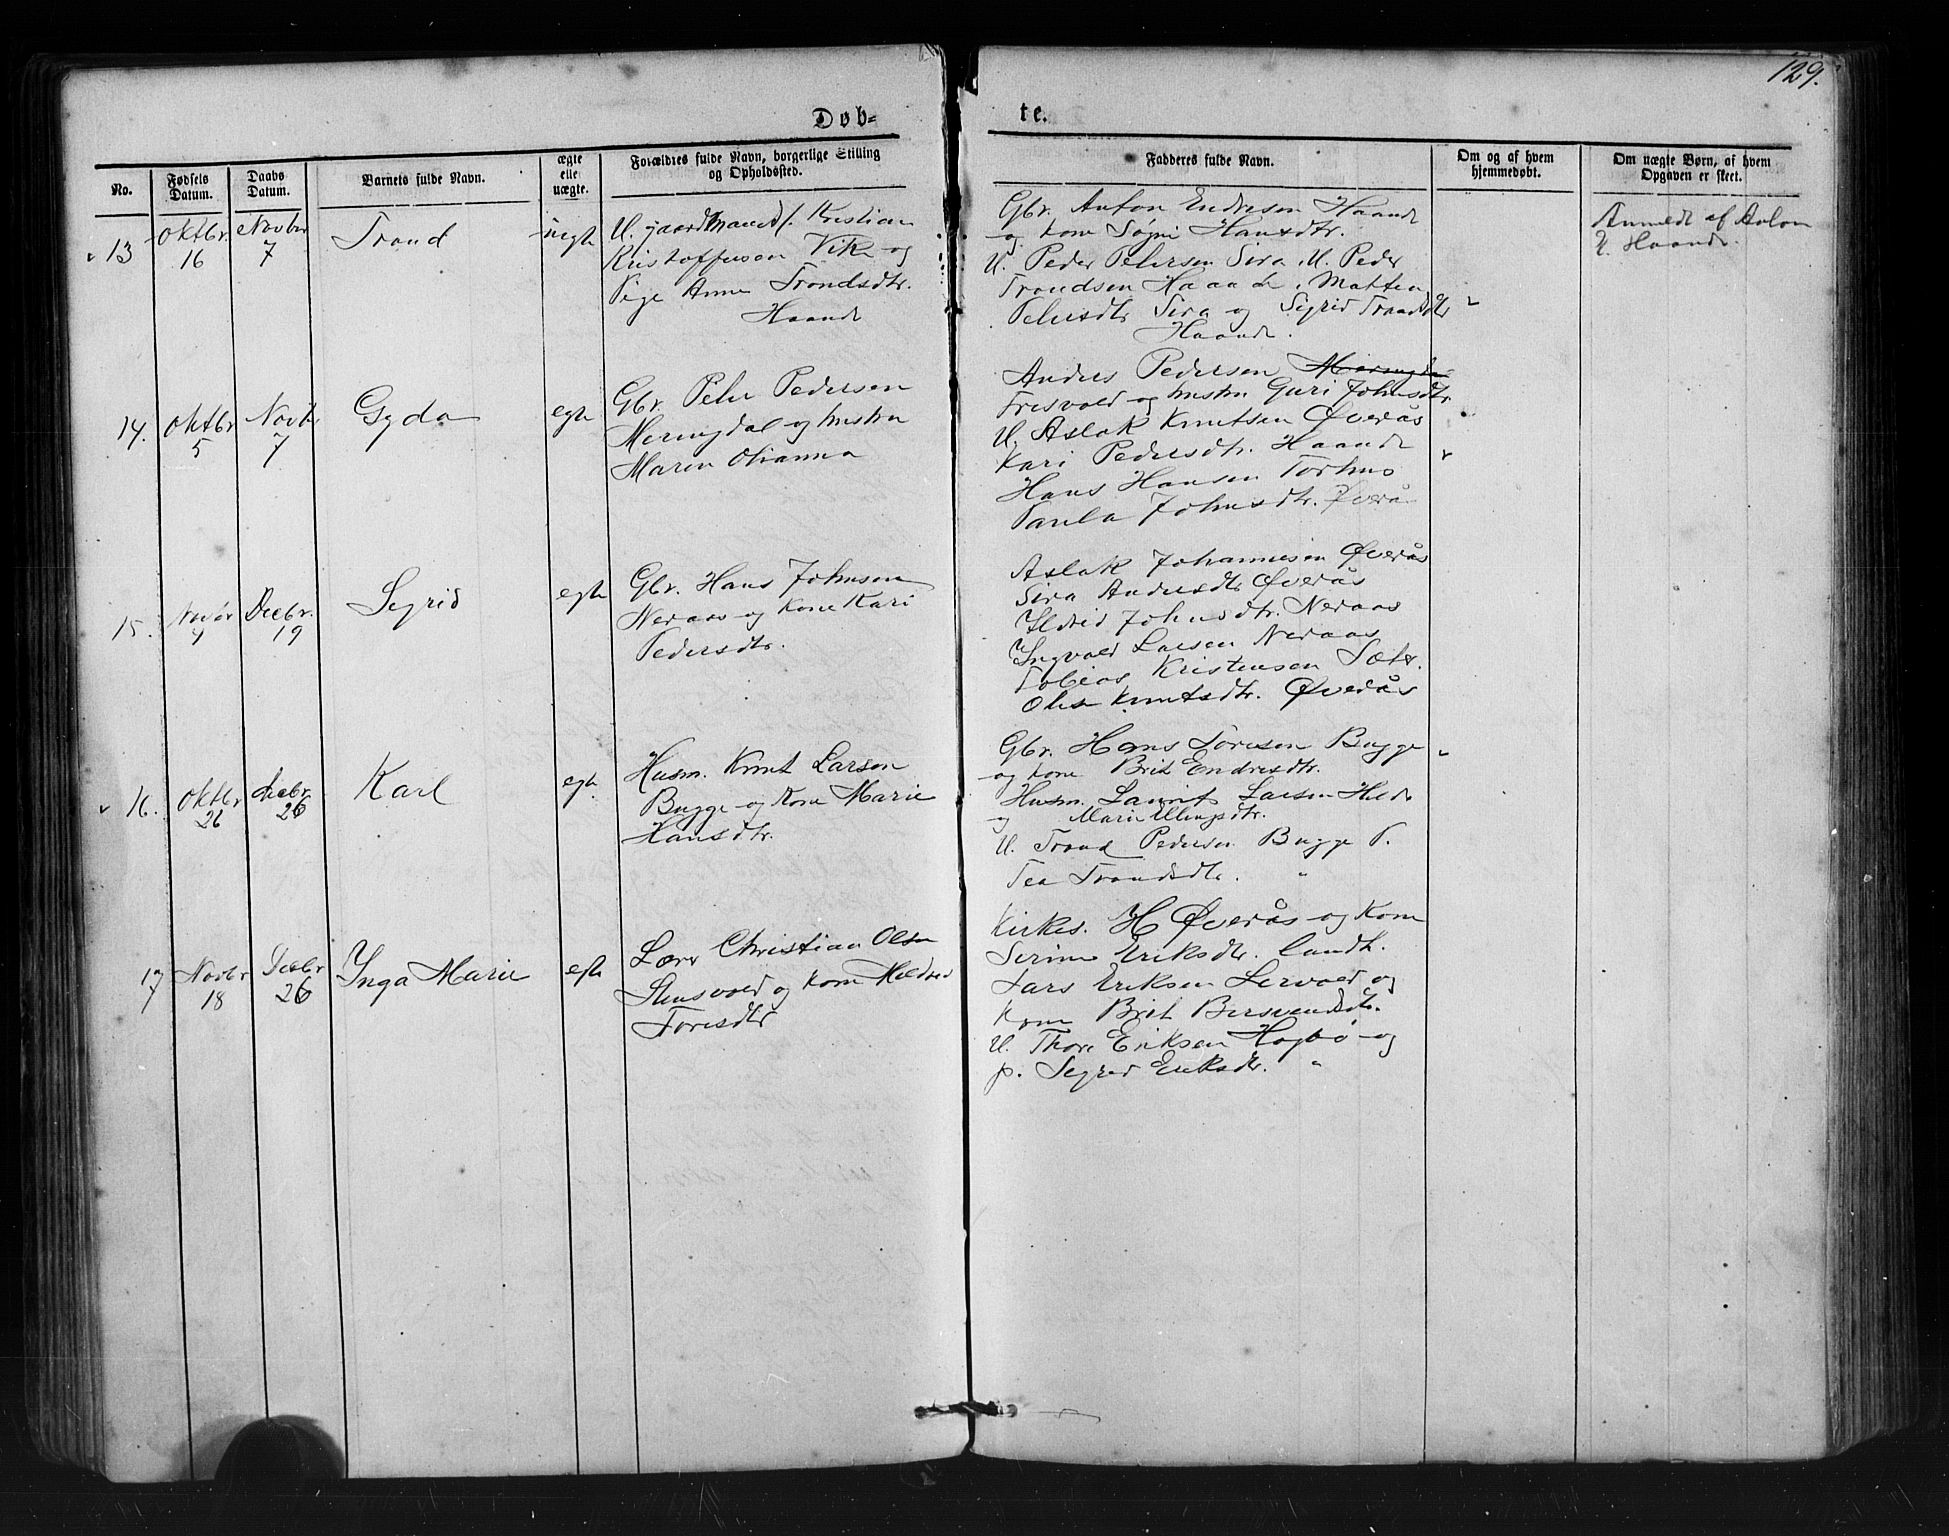 129.
Døb=
te.
No.
Fødsels Datum.
Daabs Datum.
Barnets fulde Navn.
ægte eller uægte.
Forældres fulde Navn, borgerlige Stilling og Opholdssted.
Fadderes fulde Navn.
Om og af hvem hjemmedøbt.
Om uægte Børn, af hvem Opgaven er skeet.
13
Oktbr. 16
Novbr 7
Trond
uegte
U. gaardmands. Kristian
Kristoffersen Vik og
Pige Anne Trondsdtr.
Haande
Gbr. Anton Endresen Haande
og kone Søgni Hansdtr.
U. Peder Petersen Sira, U. Peder
Trondsen Haande, Matten
Petersdtr Sira og Sigrid Trondsdtr
Haande.
Anmeldt af
U. Haande.
14.
Oktbr 5
Novbr 7
Gyda
egte
Gbr. Peter Pedersen
Meringdal og hustru
Maren Olianna
Anders Pedersen Meringdal
Tresvold og hustru Guri Johnsdtr
U. Aslak Knutsen Øverås
Kari Pedersdtr. Haande
Hans Hansen Torhus
Paula Johnsdtr. Øverås
15.
Novbr 4
Decbr. 19
Sigrid
egte
Gbr. Hans Johnsen
Neraas og kone Kari
Pedersdtr.
Aslak Johannesen Øverås
Sira Andersdtr Øverås
Ildrid Johnsdtr. Neraas
Ingvald Larsen Neraas
Tobias Kristensen Sæter.
Olise Knutsdtr. Øverås
16.
Oktbr 26
Decbr 26
Karl
egte
Husm. Knut Larsen
Bugge og kone Marie
Hansdtr.
Gbr. Hans Toresen Bugge
og kone Brit Endresdtr.
Husm. Laurits Larsen Hilde
og Marie Ellingsdtr.
U. Trond Pedersen Bugge P.
Tea Trondsdtr. "
17
Novbr 18
Decbr 26
Inga Marie
egte
Lærer Christian Olsen
Stensvold og kone Mildrid
Toresdtr
Kirkes. H Øverås og kone
Serine Eriksdtr. Candt.
Lars Eriksen Lervold og
kone Brit Bersvendsdtr.
U. Thore Eriksen Hogbø og
p. Sigrid Eriksdtr. "